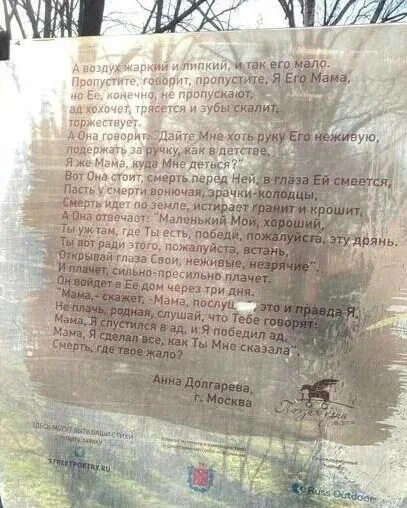 А воздух жаркий и липкий, и так его мало.
Пропустите, говорит, пропустите, Я Его Мама,
но Ее, конечно, не пропускают,
ад хохочет, трясется и зубы скалит,
торжествует.
А Она говорит: "Дайте Мне хоть руку Его неживую,
подержать за ручку, как в детстве.
Я же Мама, куда Мне деться?"
Вот Она стоит, смерть перед Ней, в глаза Ей смеется,
Пасть у смерти вонючая, зрачки-колодцы,
Смерть идет по земле, истирает гранит и крошит,
А Она отвечает: "Маленький Мой, хороший,
Ты уж там, где Ты есть, победи, пожалуйста, эту дрянь.
Ты вот ради этого, пожалуйста, встань,
Открывай глаза Свои, неживые, незрячие",
И плачет, сильно-пресильно плачет.
Он войдет в Ее дом через три дня.
"Мама,- скажет, -Мама, послуш это и правда Я,
Не плачь, родная, слушай, что Тебе говорят:
Мама, Я спустился в ад, и Я победил ад,
Мама, Я сделал все, как Ты Мне сказала".
Смерть, где твое жало?
Анна Долгарева,
г. Москва
ЗДЕСЬ МОГУТ БЫТЬ ВАШИ СТИХИ
STREETPOETRY.RU
Russ Outdoor